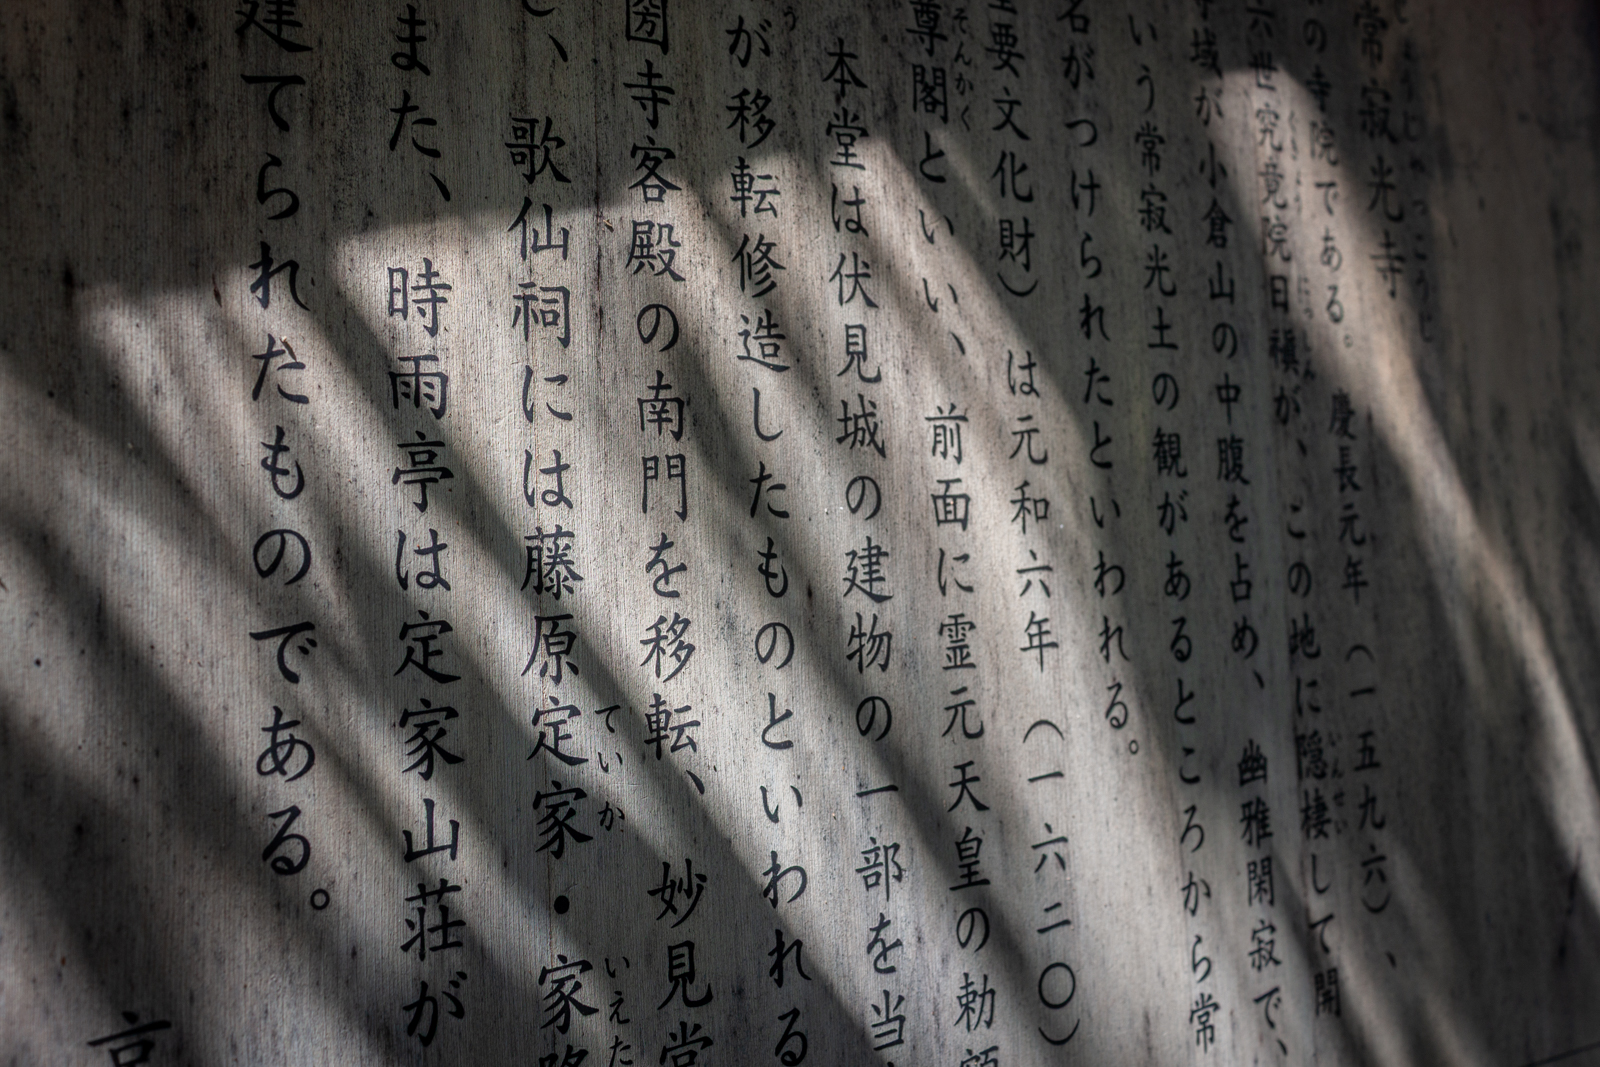 常寂光寺
の寺院である。慶長元年（一五九六）、
六世究竟院日禛が、この地に隠棲して開
いんせい
域が小倉山の中腹を占め、幽雅閑寂で、
いう常寂光土の観があるところから常
名がつけられたといわれる。
本堂は伏見城の建物の一部を当
が移転修造したものといわれる
要文化財）は元和六年（一六二〇）
尊閣といい、前面に霊元天皇の勅
そんかく
圀寺客殿の南門を移転、妙見堂
歌仙祠には藤原定家・家
ていか
いえた
また、時雨亭は定家山荘が
建てられたものである。
京